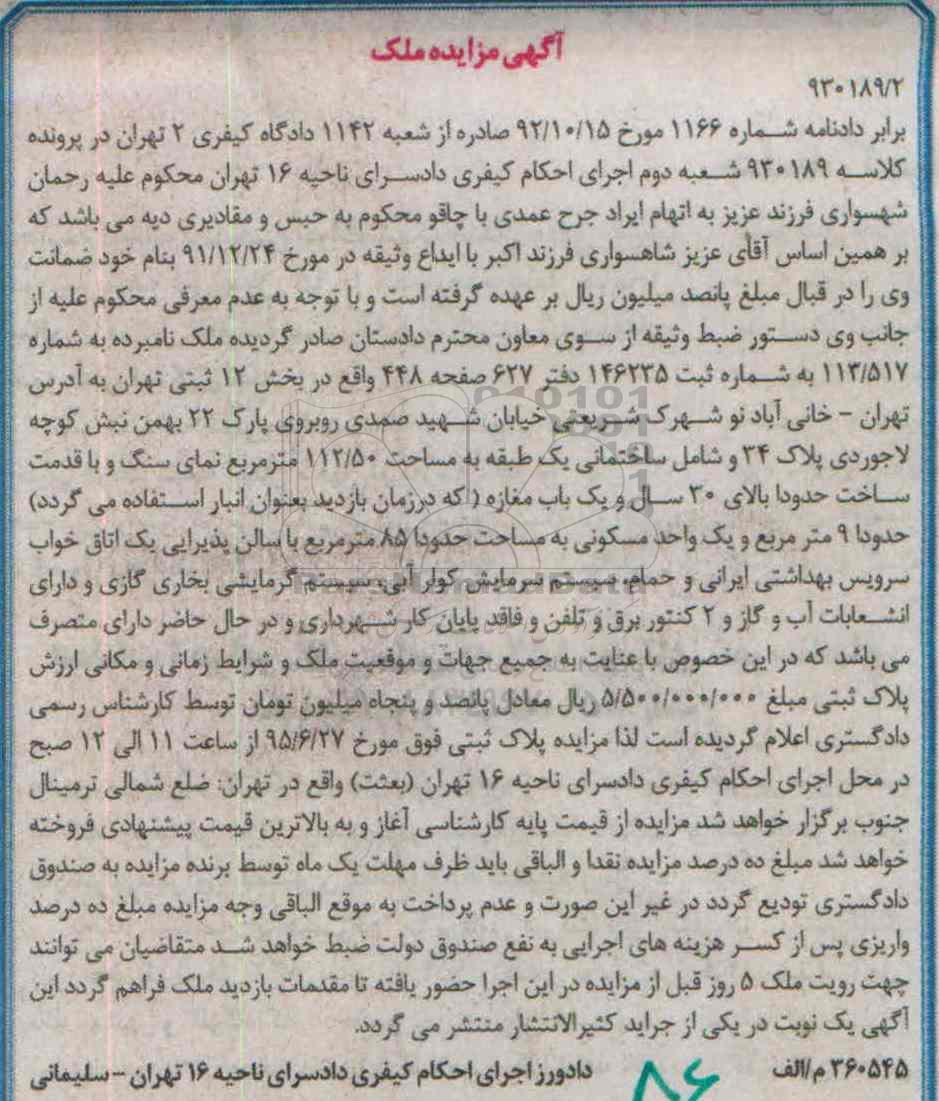 آگهی مزایده ملک
۹۳۰۱۸۹/۲
برابر دادنامه شماره ۱۱۶۶ مورخ ۹۲/۱۰/۱۵ صادره از شعبه ۱۱۴۲ دادگاه کیفری ۲ تهران در پرونده
کلاسه ۹۳۰۱۸۹ شعبه دوم اجرای احکام کیفری دادسرای ناحیه ۱۶ تهران محکوم علیه رحمان
شهسواری فرزند عزیز به اتهام ایراد جرح عمدی با چاقو محکوم به حبس و مقادیری دیه می باشد که
بر همین اساس آقای عزیز شاهسواری فرزند اکبر با ایداع وثیقه در مورخ ۹۱/۱۲/۲۴ بنام خود ضمانت
وی را در قبال مبلغ پانصد میلیون ریال بر عهده گرفته است و با توجه به عدم معرفی محکوم علیه از
جانب وی دستور ضبط وثیقه از سوی معاون محترم دادستان صادر گردیده ملک نامبرده به شماره
۱۱۳/۵۱۷ به شماره ثبت ۱۴۶۲۳۵ دفتر ۶۲۷ صفحه ۴۴۸ واقع در بخش ۱۲ ثبتی تهران به آدرس
تهران - خانی آباد نو شهرک شریعتی خیابان شهید صمدی روبروی پارک ۲۲ بهمن نبش کوچه
لاجوردی پلاک ۳۴ و شامل ساختمانی یک طبقه به مساحت ۱۱۲/۵۰ مترمربع نمای سنگ و با قدمت
ساخت حدودا بالای ۳۰ سال و یک باب مغازه ( که درزمان بازدید بعنوان انبار استفاده می گردد)
حدودا ۹ متر مربع و یک واحد مسکونی به مساحت حدودا ۸۵ مترمربع با سالن پذیرایی یک اتاق خواب
سرویس بهداشتی ایرانی و حمام، سیستم سرمایش کولر آبی، سیستم گرمایشی بخاری گازی و دارای
انشعابات آب و گاز و ۲ کنتور برق و تلفن و فاقد پایان کار شهرداری و در حال حاضر دارای متصرف
می باشد که در این خصوص با عنایت به جمیع جهات و موقعیت ملک و شرایط زمانی و مکانی ارزش
پلاک ثبتی مبلغ ۵/۵۰۰/۰۰۰/۰۰۰ ریال معادل پانصد و پنجاه میلیون تومان توسط کارشناس رسمی
دادگستری اعلام گردیده است لذا مزایده پلاک ثبتی فوق مورخ ۹۵/۶/۲۷ از ساعت ۱۱ الی ۱۲ صبح
در محل اجرای احکام کیفری دادسرای ناحیه ۱۶ تهران (بعثت) واقع در تهران: ضلع شمالی ترمینال
جنوب برگزار خواهد شد مزایده از قیمت پایه کارشناسی آغاز و به بالاترین قیمت پیشنهادی فروخته
خواهد شد مبلغ ده درصد مزایده نقدا و الباقی باید ظرف مهلت یک ماه توسط برنده مزایده به صندوق
دادگستری تودیع گردد در غیر این صورت و عدم پرداخت به موقع الباقی وجه مزایده مبلغ ده درصد
واریزی پس از کسر هزینه های اجرایی به نفع صندوق دولت ضبط خواهد شد متقاضیان می توانند
جهت رویت ملک ۵ روز قبل از مزایده در این اجرا حضور یافته تا مقدمات بازدید ملک فراهم گردد این
آگهی یک نوبت در یکی از جراید کثیرالانتشار منتشر می گردد.
۳۶۰۵۴۵ م/الف دادورز اجرای احکام کیفری دادسرای ناحیه ۱۶ تهران - سلیمانی
۸۶